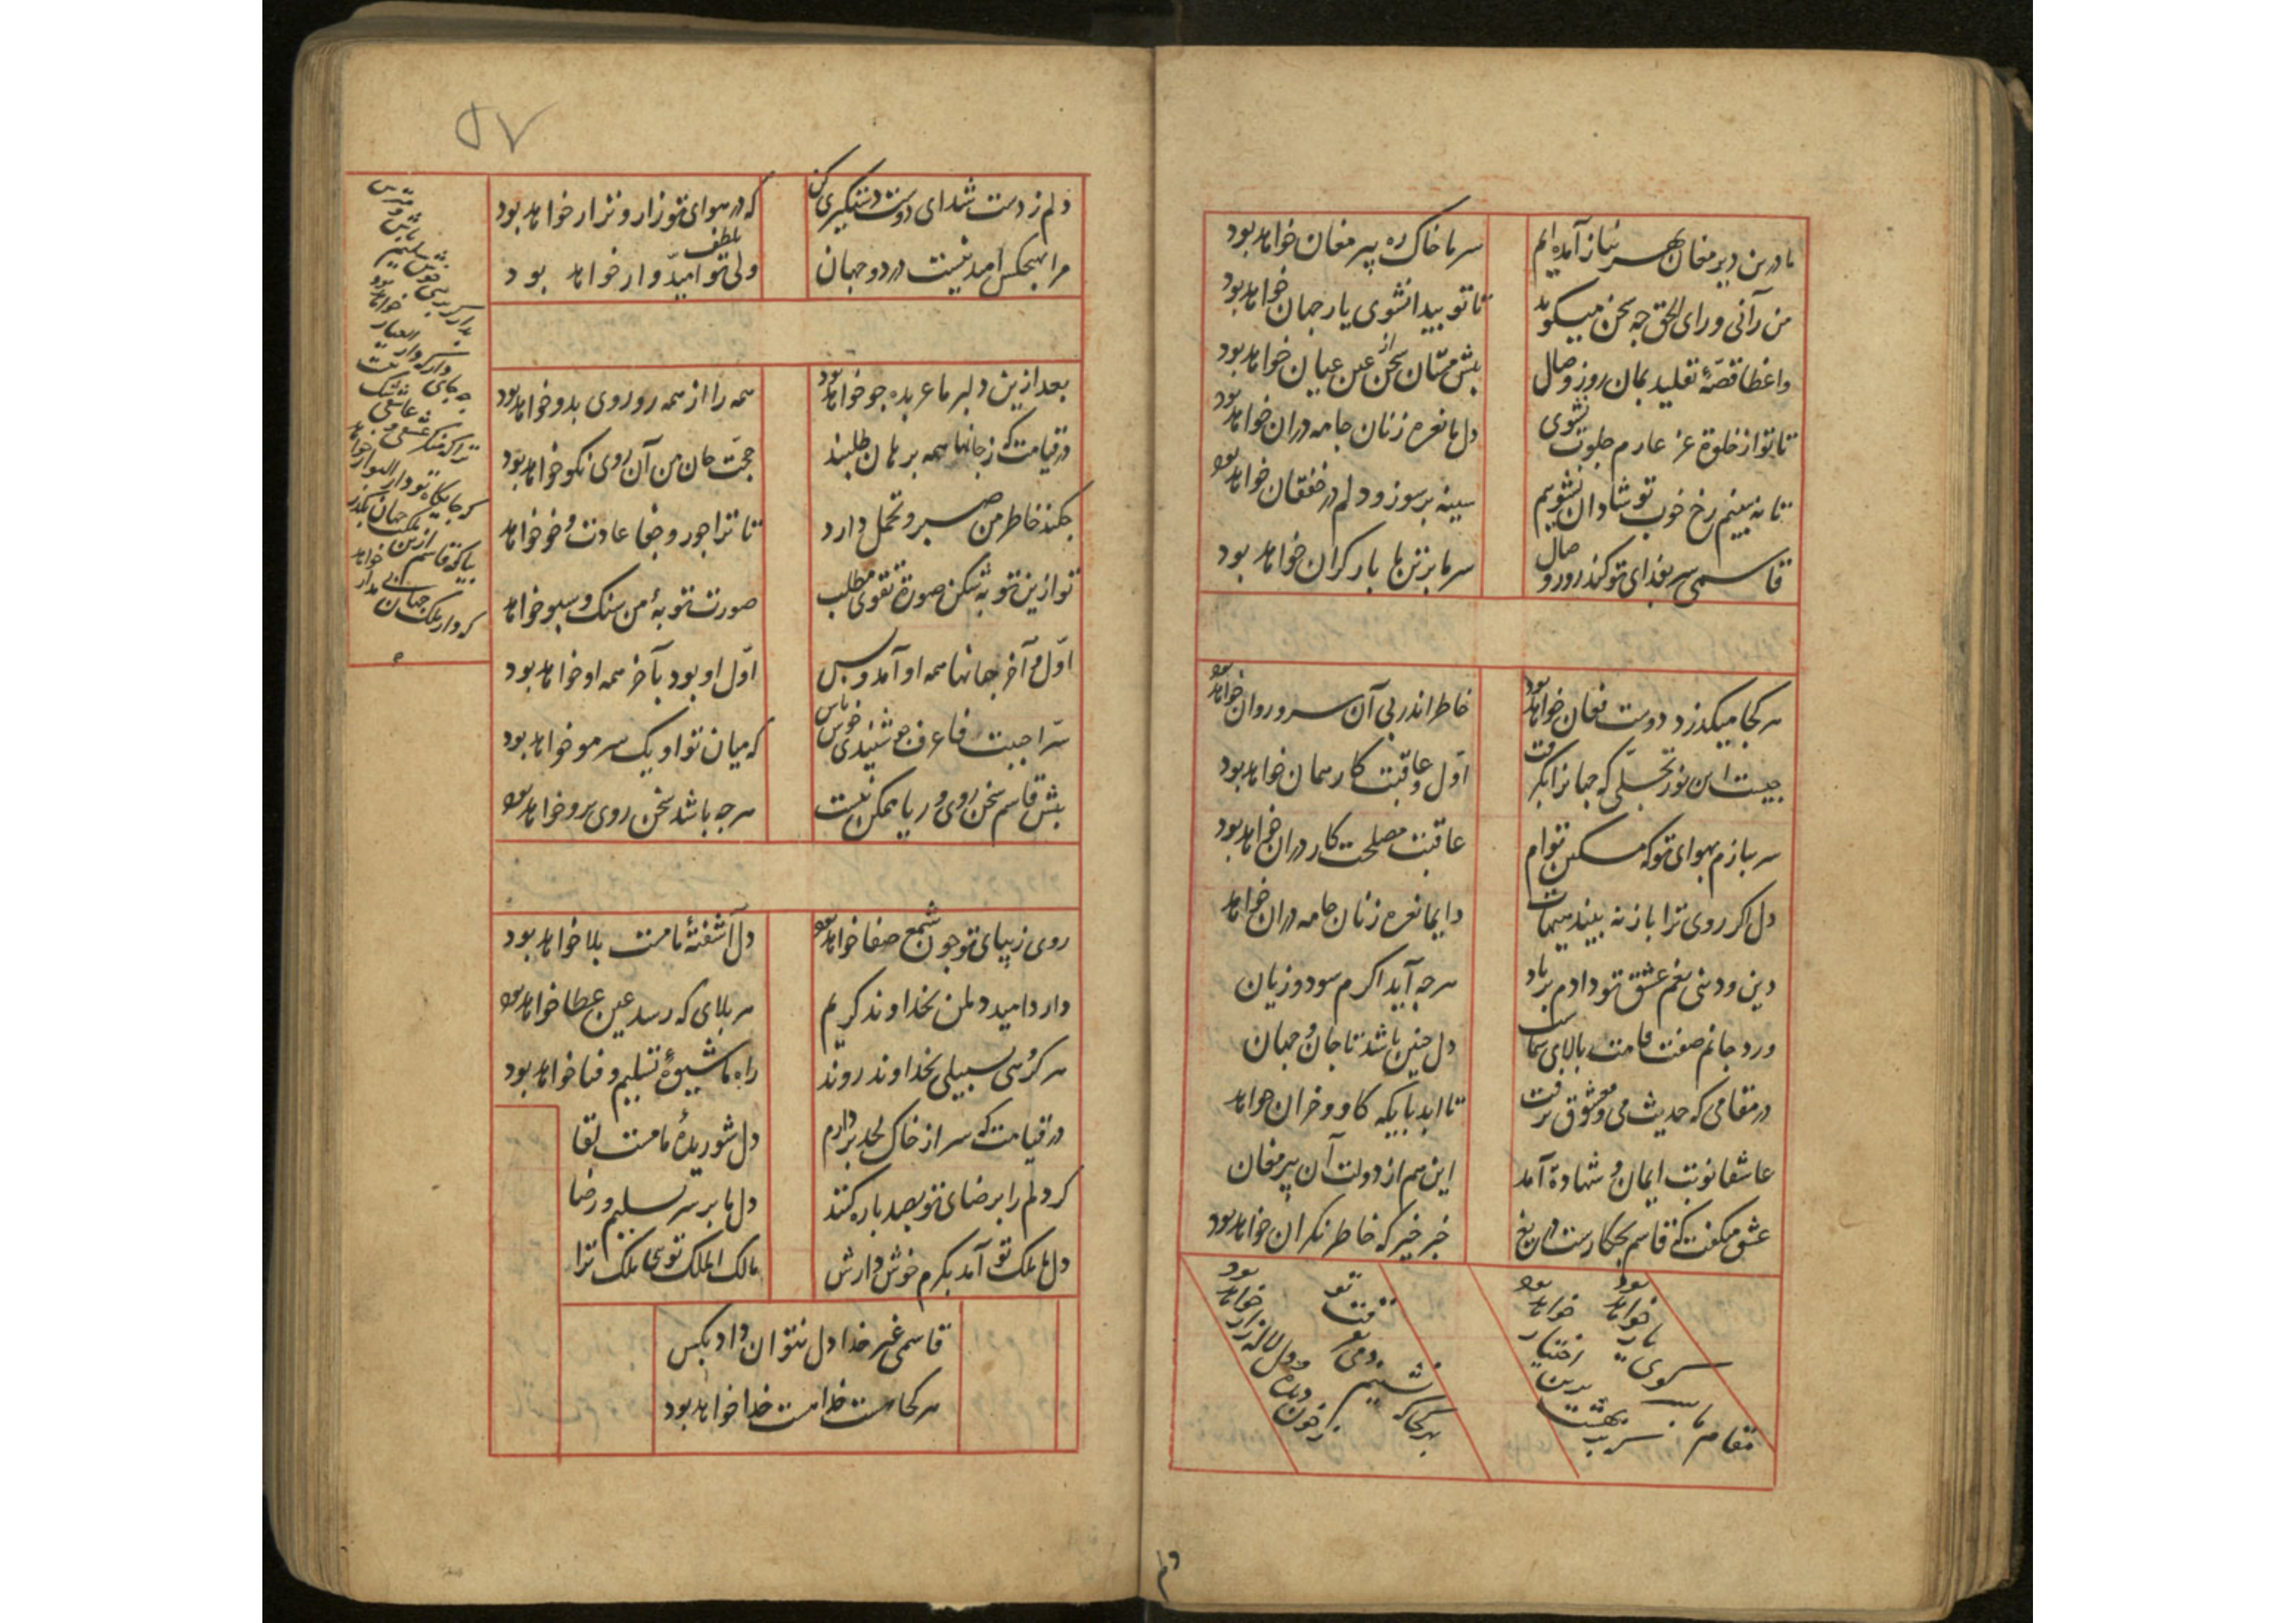 ما درین دیر مغان بهر نیاز آمده‌ایم
سر ما خاک ره پیر مغان خواهد بود
من رآنی و رای الحق چه سخن میکوید
تا تو پیدا نشوی یار جهان خواهد بود
واعظا قصّهٔ تقلید بمان روز وصال
پیش مستان سخن از عین عیان خواهد بود
تا تو از خلوة عز عازم جلوت نشوی
دل ما نعره زنان جامه دران خواهد بود
تا نه بینیم رخ خوب تو شادان نشویم
سینه پر سوز و دلم در خفقان خواهد بود
قاسمی سر بفدای تو کند روز وصال
سر ما بر تن ما بار کران خواهد بود
هر کجا میکذرد دوست فغان خواهد بود
خاطر اندر پی آن سرو روان خواهد بود
چیست این نور تجلّی که جهانرا بگرفت
اوّل و عاقبت کار همان خواهد بود
سر ببازم بهوای تو که مسکین توام
عاقبت مصلحت کار دران خواهد بود
دل اکر روی ترا باز نه بیند هیهات
دایما نعره زنان جامه دران خواهد
دین و دنیی بغم عشق تو دادم بر باد
هر چه آید اکرم سود و زیان
ورد جانم صفت قامت بالای شماست
دل چنین باشد تا جان و جهان
در مقامی که حدیث می و معشوق نرفت
تا ابد بایکه کاو و خران خواهد
عاشقا نوبت ایمان و شهادة آمد
این هم از دولت آن پیر مغان
عشق میکفت که قاسم بچه کارست دریغ
خبر خیر که خاطر نکران خواهد بود
مقام ما سر کوی یار خواهد بود
بهشت بدین اختیار خواهد بود
بهر کجا که نشینم دمی
ز خون دیده و دل لاله زار خواهد بود
دلم
۵۷
دلم ز دست شد ای دوست دستکیری کن
که در هوای تو زار و نزار خواهد بود
مرا بهیچکس امید نیست در دو جهان
ولی بلطف تو امیدّوار خواهد بود
بعد ازین دلبر ما عربده جو خواهد بود
همه را از همه رو روی بدو خواهد بود
در قیامت که ز جانها همه برهان طلبند
حجّت جان من آن روی نکو خواهد بود
چکند خاطر من صبر و تحمل دارد
تا ترا جور و جفا عادت و خو خواهد
تو ازین توبه شکن صورة تقوی مطلب
صورت توبهٔ من سنک و سبو خواهد
اوّل و آخر جانها همه او آمد و بس
اوّل او بود بآخر همه او خواهد بود
سرّ احببت فاعرف چو شنیدی خوش باش
که میان تو او یک سر مو خواهد بود
پیش قاسم سخن روی و ریا ممکن نیست
هر چه باشد سخن روی برو خواهد بود
روی زیبای تو چون شمع صفا خواهد بود
دل آشفتهٔ ما مست بلا خواهد بود
دارد امید دل من بخداوند کریم
هر بلای که رسد عین عطا خواهد بود
هر کسی سبیلی بخداوند روند
راه ما شیوهٔ تسلیم و فنا خواهد بود
در قیامت که سر از خاک لحد بردارم
دل شوریدهٔ ما مست لقا
کر دلم را برضای تو بصد پاره کنند
دل ما بر سر تسلیم و رضا
دل ما ملک تو آمد بکرم خوش دارش
مالک الملک توی ملک ترا
قاسمی غیر خدا دل نتوان داد بکس
هر کجا هست خدا هست خدا خواهد بود